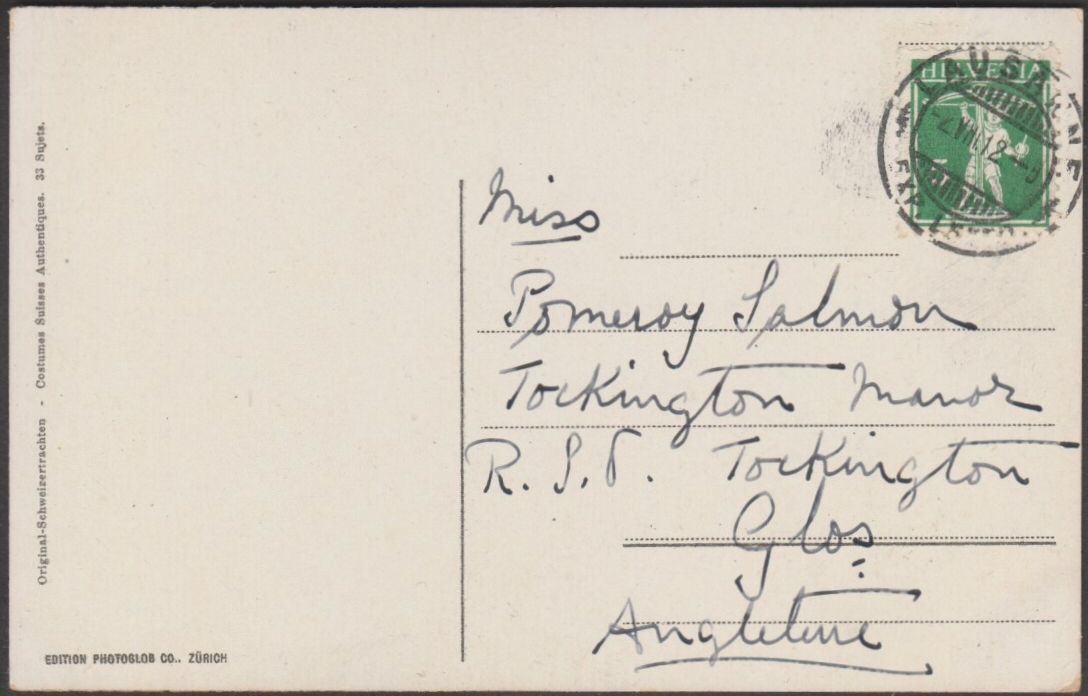 Original-Schweizertrachten - Costumes Suisses Authentiques. 33 Sujets.
EDITION PHOTOGLOB CO., ZÜRICH
HELVETIA
LAUSANNE
VII.12
EXP. LETT.
Miss
Pomeroy Salmon
Tockington Manor
R.S.O. Tockington
Glos
Angleterre